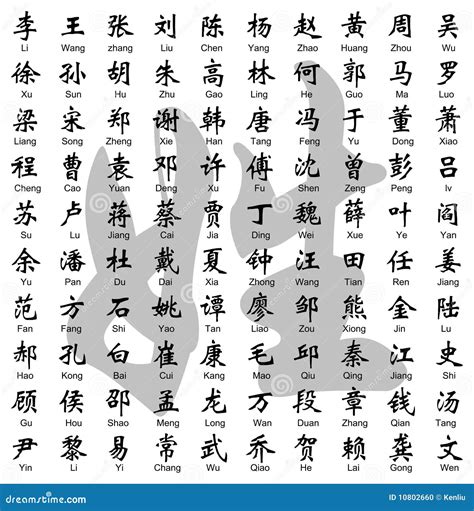 李 王 张 刘 陈 杨 赵 黄 周 吴
Li Wang zhang Liu Chen Yang Zhao Huang Zhou Wu
徐 孙 胡 朱 高 林 何 郭 马 罗
Xu Sun Hu Zhu Gao Ling He Guo Ma Luo
梁 宋 郑 谢 韩 唐 冯 于 董 萧
Liang Song Zheng Xie Han Tang Feng Yu Dong Xiao
程 曹 袁 邓 许 傅 沈 曾 彭 吕
Cheng Cao Yuan Deng Xu Fu Shen Zeng Peng lv
苏 卢 蒋 蔡 贾 丁 魏 薛 叶 阎
Su Lu Jiang Cai Jia Ding Wei Xue Ye Yan
余 潘 杜 戴 夏 钟 汪 田 任 姜
Yu Pan Du Dai Xia Zhong Wang Tian Ren Jiang
范 方 石 姚 谭 廖 邹 熊 金 陆
Fan Fang Shi Yao Tan Liao Zou Xiong Jin Lu
郝 孔 白 崔 康 毛 邱 秦 江 史
Hao Kong Bai Cui Kang Mao Qiu Qing Jiang Shi
顾 侯 邵 孟 龙 万 段 章 钱 汤
Gu Hou Shao Meng Long Wan Duan Zhang Qian Tang
尹 黎 易 常 武 乔 贺 赖 龚 文
Yin Li Yi Chang Wu Qiao He Lai Gong Wen
姓
dreamstime.com
ID 10802660 © Kenliu